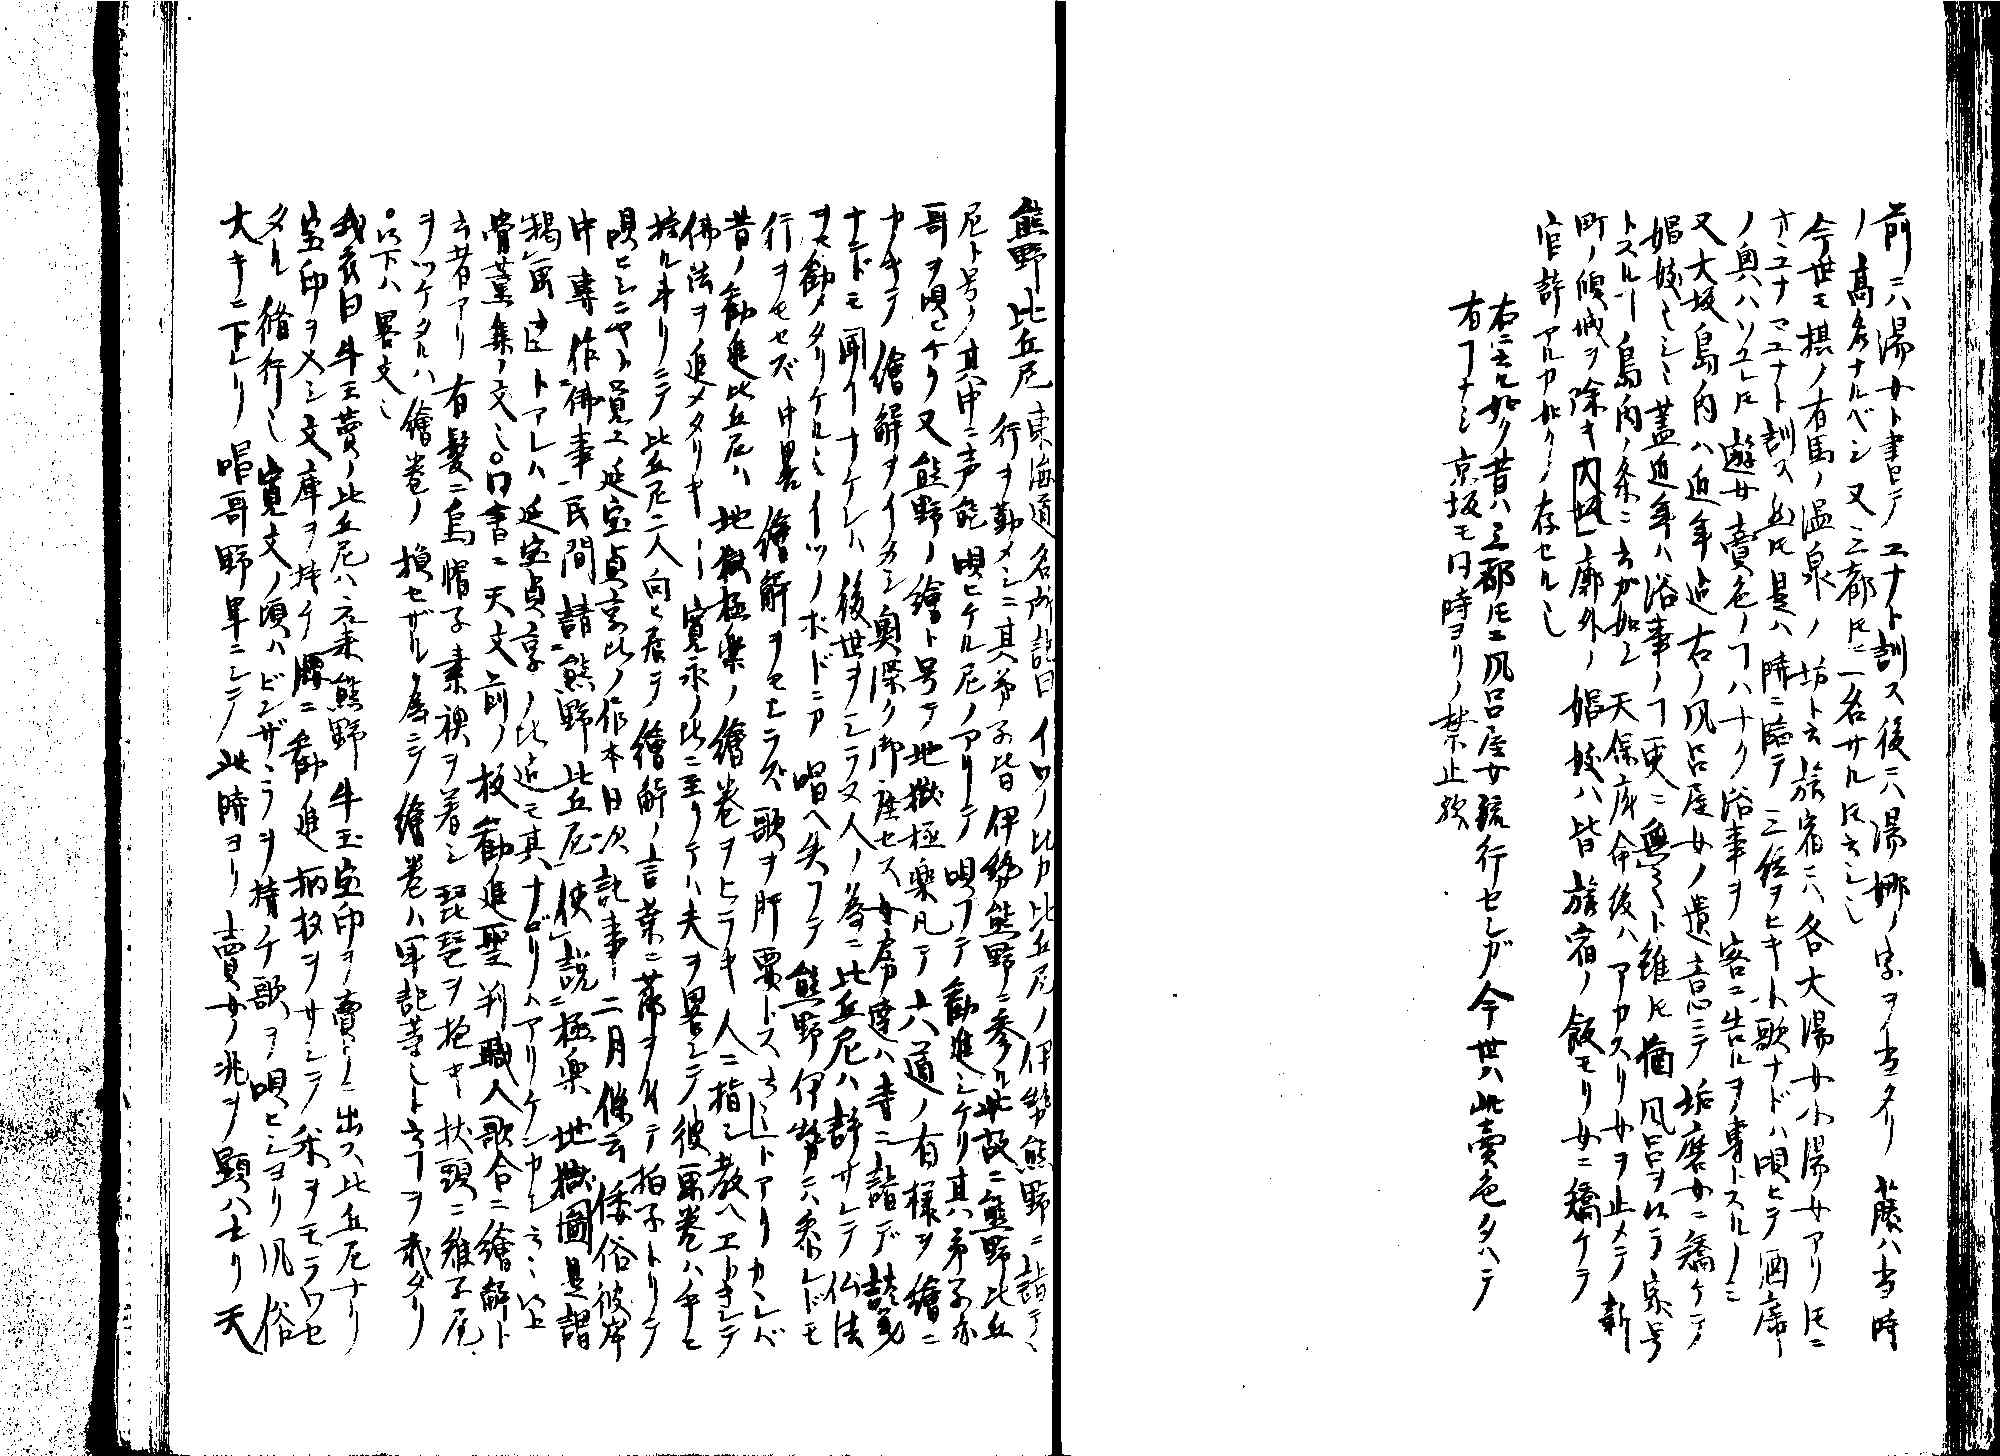 前ニハ湯女ト書ヒテユナト訓ス後ニハ湯娜ノ字ヲ当タリ 藤ハ当時
ノ高名ナルベシ又三都トモニ一名サルトモ云シ也
今世モ摂ノ有馬ノ温泉ノ坊ト云旅宿ニハ各大湯女小湯女アリトモニ
オユナコユナト訓ス然トモ是ハ時ニ臨テ三絃ヲヒキ小歌ナドハ唄ヒテ酒席
ノ興ハソユレトモ遊女賣色ノコハナク浴事ヲ客ニ告ルヲ専トスルノミ
又大坂島ノ内ハ近年迄右ノ風呂屋女ノ遺意ニテ垢磨女ニ矯ケテ
娼妓也シ也蓋近年ハ浴事ノコ更ニ無之ト雖トモ猶風呂ヲ以テ家号
トスルコ島ノ内ノ条ニ云ガ如シ天保府命後ハアカスリ女ヲ止メテ新
町ノ傾城ヲ除キ内坂廓外ノ娼妓ハ皆旅宿ノ飯モリ女ニ矯ケテ
官許アルカ如クノ存セル也
右ニ云ル如ク昔ハ三都トモニ風呂屋女流行セシガ今世ハ此賣色タヘテ
有コナシ京坂モ同時ヨリノ禁止歟
熊野比丘尼 東海道名所記曰イツノ比カ比丘尼ノ伊勢熊野ニ詣テヽ
行ヲ勤メシニ其弟子皆伊勢熊野ニ参ル此故ニ熊野比丘
尼ト号ク其中ニ声能唄ヒケル尼ノアリテ唄フテ勧進シケリ其弟子亦
哥ヲ唄ヒケリ又熊野ノ繪ト号テ地獄極楽凡テ六道ノ有様ヲ繪ニ
カキテ繪解ヲイタシ奥深ク御座セス女房達ハ寺ニ詣デ談義
ナンドモ聞クコナケレハ後世ヲシラヌ人ノ為ニ比丘尼ハ許サレテ仏法
ヲ勧メタリケル也イツノホドニカ唱ヘ失フテ熊野伊勢ニハ参レドモ
行ヲモセズ 中畧 繪解ヲモシラズ歌ヲ肝要トス云々トアリカヽレバ
昔ノ勧進比丘尼ハ地獄極楽ノ繪巻ヲヒラキ人ニ指シ教ヘエトキシテ
佛法ヲ進メタリキ 寛永ノ比ニ至リテハ夫ヲ畧シテ彼画巻ハ手ニ
持ルノミニテ比丘尼二人向ヒ居テ繪解ノ言葉ニ節ヲ付テ拍子トリテ
唄ヒシニヤト覚ユ延宝貞京比ノ作本日次記事二月條云倭俗彼岸
中専作佛事民間請熊野比丘尼使説極楽地獄圖是謂
掲画 トアレハ延宝貞享ノ比迄モ其ナゴリハアリケンカシ云々以上
骨董集ノ文也○同書ニ天文前ノ板勧進聖判職人歌合ニ繪解ト
云者アリ有髪ニ烏帽子素襖ヲ着シ琵琶ヲ抱キ杖頭ニ雉子尾
ヲツケタルハ繪巻ノ損セザル為ニテ繪巻ハ軍記等也ト云コヲ載タリ
○以下ハ畧文也
我衣曰牛王賣ノ比丘尼ハ元来熊野牛玉宝印ヲ賣リニ出ス比丘尼ナリ
宝印ヲ入シ文庫ヲ持チ 勧進柄杓ヲサシテ米ヲモラワセ
タル脩行也 寛文ノ頃ハビンザヽラヲ持チ歌ヲ唄ヒシヨリ風俗
大キニ下レリ唱哥野卑ニシテ此時ヨリ賣女ノ兆ヲ顕ハセリ天